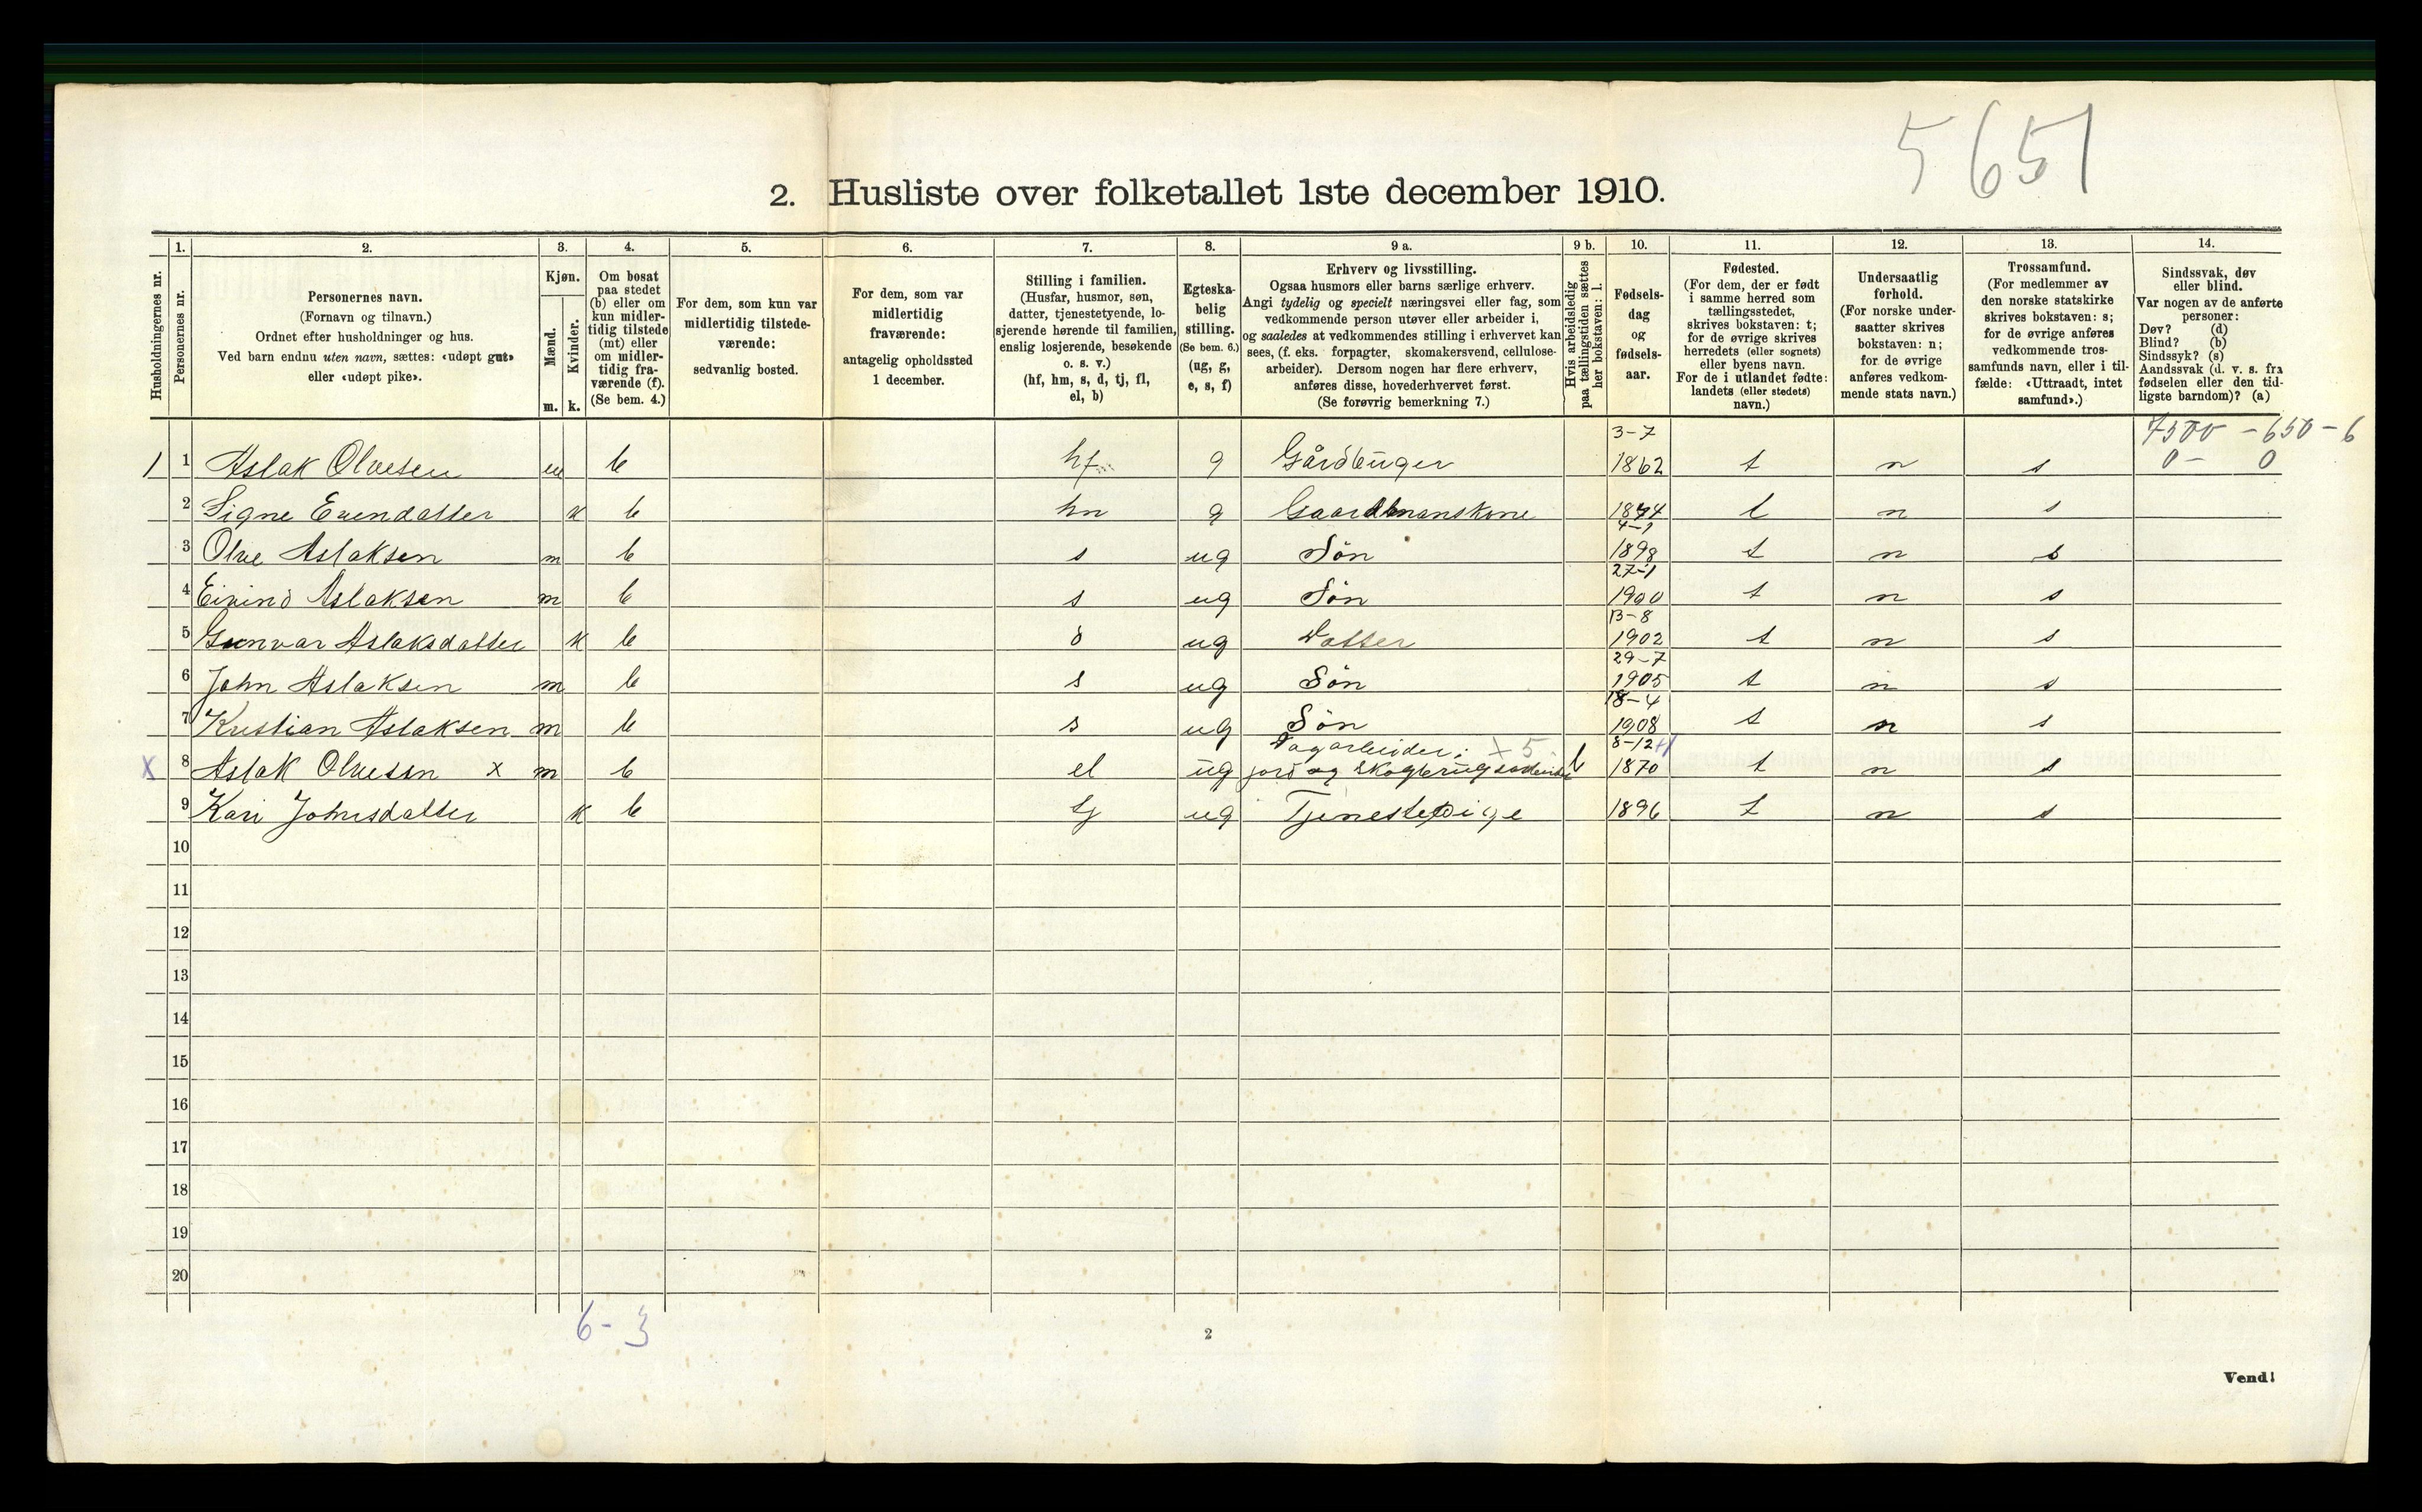 5651
2. Husliste over folketallet 1ste december 1910.
Husholdningernes nr.
1. Personernes nr.
2. Personernes navn.
(Fornavn og tilnavn.)
Ordnet efter husholdninger og hus.
Ved barn endnu uten navn, sættes: «udøpt gut»
eller «udøpt pike».
3. Kjøn.
Mænd. m.
Kvinder. k.
4. Om bosat
paa stedet
(b) eller om
kun midler-
tidig tilstede
(mt) eller
om midler-
tidig fra-
værende (f).
(Se bem. 4.)
5. For dem, som kun var
midlertidig tilstede-
værende:
sedvanlig bosted.
6. For dem, som var
midlertidig
fraværende:
antagelig opholdssted
1 december.
7. Stilling i familien.
(Husfar, husmor, søn,
datter, tjenestetyende, lo-
sjerende hørende til familien,
enslig losjerende, besøkende
o. s. v.)
(hf, hm, s, d, tj, fl,
el, b)
8. Egteska-
belig
stilling.
(Se bem. 6.)
(ug, g,
e, s, f)
9 a. Erhverv og livsstilling.
Ogsaa husmors eller barns særlige erhverv.
Angi tydelig og specielt næringsvei eller fag, som
vedkommende person utøver eller arbeider i,
og saaledes at vedkommendes stilling i erhvervet kan
sees, (f. eks. forpagter, skomakersvend, cellulose-
arbeider). Dersom nogen har flere erhverv,
anføres disse, hovederhvervet først.
(Se forøvrig bemerkning 7.)
9 b. Hvis arbeidsledig
paa tællingstiden sættes
her bokstaven: l.
10. Fødsels-
dag
og
fødsels-
aar.
11. Fødested.
(For dem, der er født
i samme herred som
tællingsstedet,
skrives bokstaven: t;
for de øvrige skrives
herredets (eller sognets)
eller byens navn.
For de i utlandet fødte:
landets (eller stedets)
navn.)
12. Undersaatlig
forhold.
(For norske under-
saatter skrives
bokstaven: n;
for de øvrige
anføres vedkom-
mende stats navn.)
13. Trossamfund.
(For medlemmer av
den norske statskirke
skrives bokstaven: s;
for de øvrige anføres
vedkommende tros-
samfunds navn, eller i til-
fælde: «Uttraadt, intet
samfund».)
14. Sindssvak, døv
eller blind.
Var nogen av de anførte
personer:
Døv? (d)
Blind? (b)
Sindssyk? (s)
Aandssvak (d. v. s. fra
fødselen eller den tid-
ligste barndom)? (a)
3-7 7500 - 650 - 6
1 1 Aslak Olvesen m b hf g Gårdbruger 1862 t n s 0 - 0
2 Signe Evendatter k b hm g Gaardmanskone 1874 t n s
4-1
3 Olve Aslaksen m b s ug Søn 1898 t n s
27-1
4 Eivind Aslaksen m b s ug Søn 1900 t n s
13-8
5 Gunvar Aslaksdatter k b d ug Datter 1902 t n s
29-7
6 John Aslaksen m b s ug Søn 1905 t n s
18-4
7 Kristian Aslaksen m b s ug Søn 1908 t n s
Dagarbeider; x 5 8-12
x 8 Aslak Olvesen x m b el ug jord og skogbrugsarbeide l 1870 t n s
9 Kari Johnsdatter k b tj ug Tjenestepige 1896 t n s
10
11
12
13
14
15
16
17
18
19
20
6-3
2
Vend!